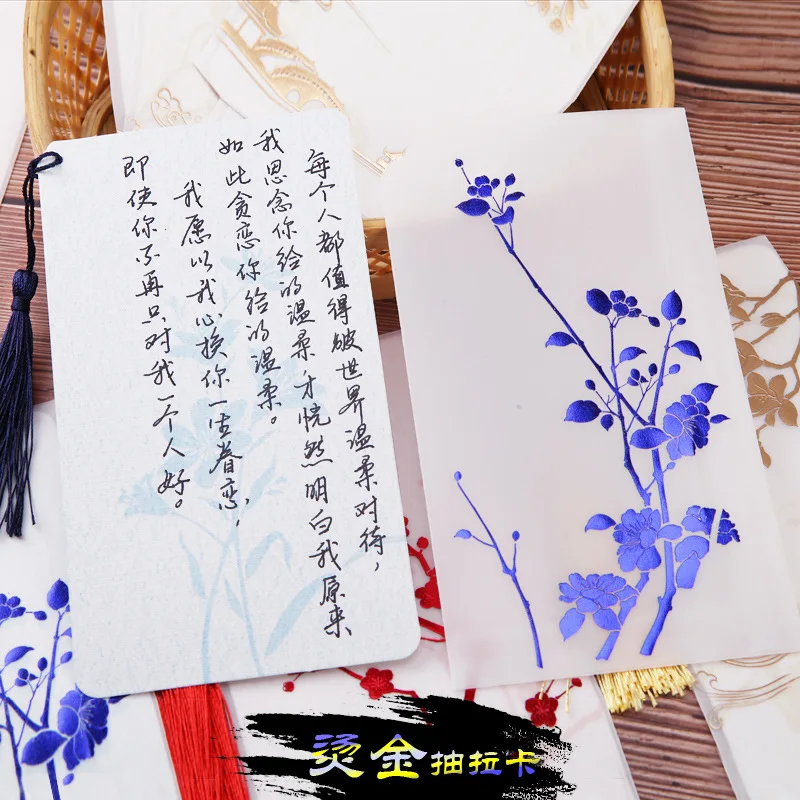 每个人都值得被世界温柔对待，
我思念你给的温柔才恍然明白我原来
如此贪恋你给的温柔。
我愿以我心换你一生眷恋，
即使你不再只对我一个人好。
烫金抽拉卡